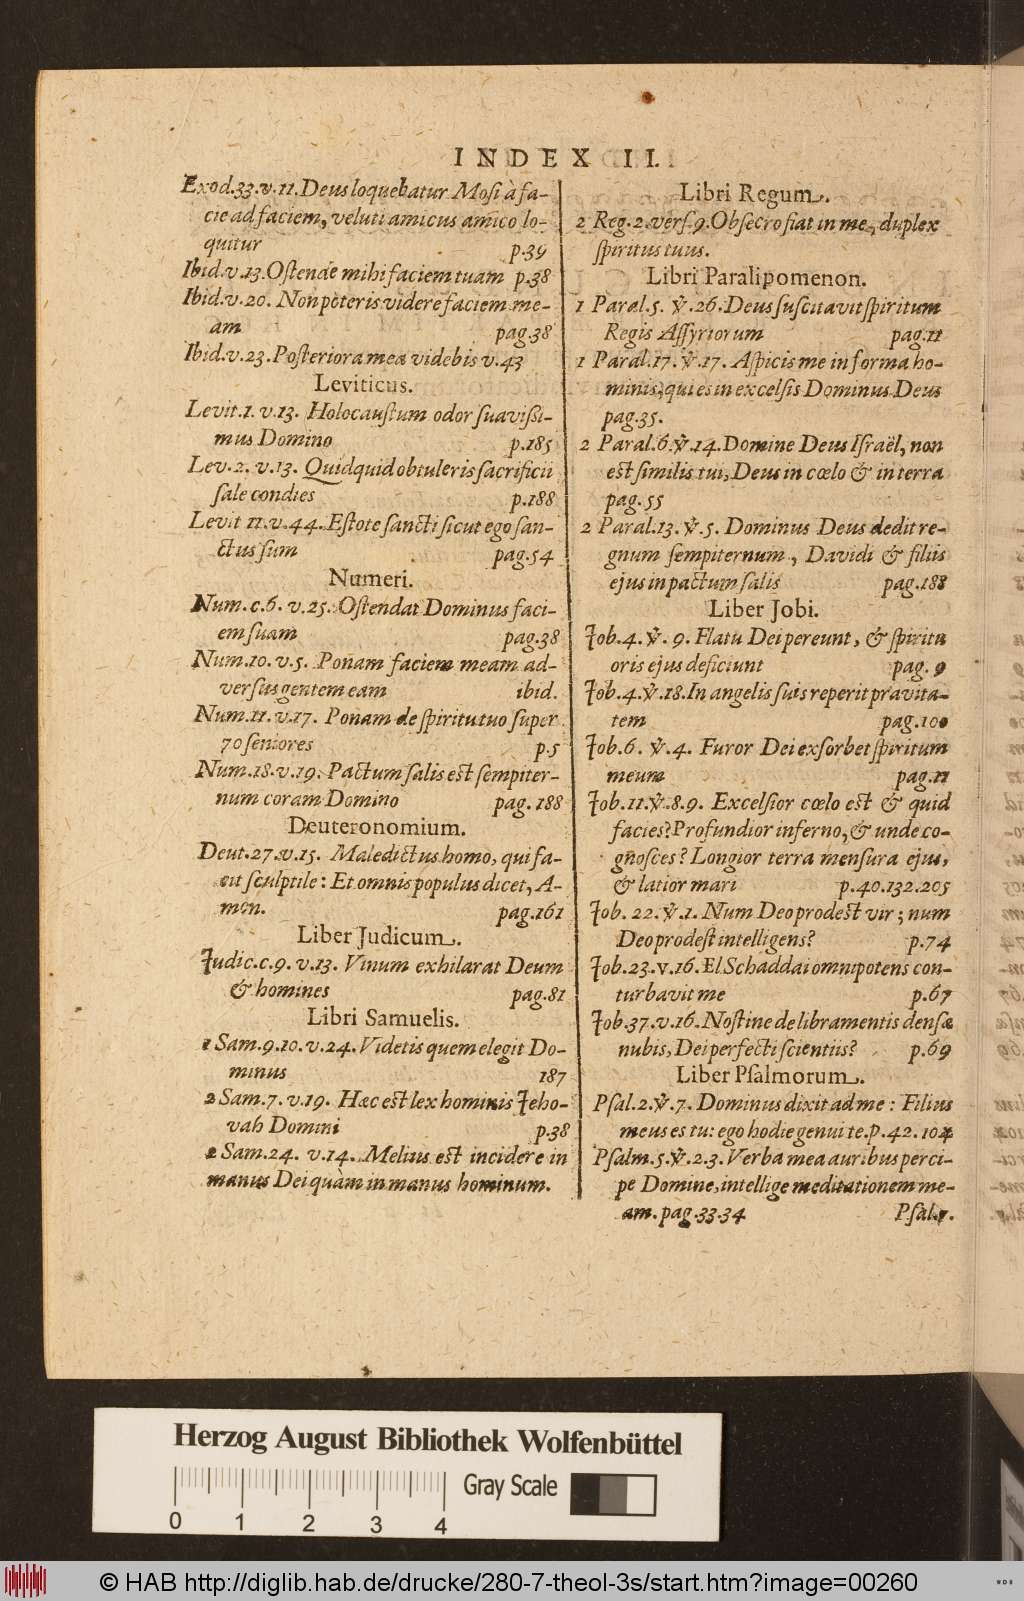 INDEX II.
Exod.33.v.11. Deus loquebatur Mosi à fa-
cie ad faciem, veluti amicus amico lo-
quitur p.39
Ibid.v.13. Ostende mihi faciem tuam p.38
Ibid.v.20. Non poteris videre faciem me-
am pag.38
Ibid.v.23. Posteriora mea videbis v.43
Leviticus.
Levit.1. v.13. Holocaustum odor suavissi-
mus Domino p.185
Lev.2. v.13. Quidquid obtuleris sacrificii
sale condies p.188
Levit 11.v.44. Estote sancti sicut ego san-
ctus sum pag.54
Numeri.
Num.c.6. v.25. Ostendat Dominus faci-
em suam pag.38
Num.10.v.5. Ponam faciem meam ad-
versus gentem eam ibid.
Num.11.v.17. Ponam de spiritu tuo super
70 seniores p.5
Num.18.v.19. Pactum salis est sempiter-
num coram Domino pag.188
Deuteronomium.
Deut.27.v.15. Maledictus homo, qui fa-
cit sculptile: Et omnis populus dicet, A-
men. pag.161
Liber Judicum.
Judic.c.9. v.13. Vinum exhilarat Deum
& homines pag.81
Libri Samuelis.
1 Sam.9.10.v.24. Videtis quem elegit Do-
minus 187
2 Sam.7. v.19. Hæc est lex hominis Jeho-
vah Domini p.38
2 Sam.24. v.14. Melius est incidere in
manus Dei quàm in manus hominum.
Libri Regum.
2 Reg.2.vers.9. Obsecro fiat in me, duplex
spiritus tuus.
Libri Paralipomenon.
1 Paral.5. ℣.26. Deus suscitavit spiritum
Regis Assyriorum pag.11
1 Paral.17.℣.17. Aspicis me in forma ho-
minis, qui es in excelsis Dominus Deus
pag.35.
2 Paral.6.℣.14. Domine Deus Israël, non
est similis tui, Deus in cœlo & in terra
pag.55
2 Paral.13.℣.5. Dominus Deus dedit re-
gnum sempiternum, Davidi & filiis
ejus in pactum salis pag.188
Liber Jobi.
Job.4.℣.9. Flatu Dei pereunt, & spiritu
oris ejus deficiunt pag.9
Job.4.℣.18. In angelis suis reperit pravita-
tem pag.100
Job.6. ℣.4. Furor Dei exsorbet spiritum
meum pag.11
Job.11.℣.8.9. Excelsior cœlo est & quid
facies? Profundior inferno, & unde co-
gnosces? Longior terra mensura ejus,
& latior mari p.40.132.205
Job. 22.℣.1. Num Deo prodest vir; num
Deo prodest intelligens? p.74
Job.23.v.16. El Schaddai omnipotens con-
turbavit me p.67
Job.37.v.16. Nostine de libramentis densæ
nubis, Dei perfecti scientiis? p.69
Liber Psalmorum.
Psal.2.℣.7. Dominus dixit ad me: Filius
meus es tu: ego hodie genui te. p.42.104
Psalm.5.℣.2.3. Verba mea auribus perci-
pe Domine, intellige meditationem me-
am. pag.33.34 Psal.7.
Herzog August Bibliothek Wolfenbüttel
Gray Scale
0 1 2 3 4
© HAB http://diglib.hab.de/drucke/280-7-theol-3s/start.htm?image=00260